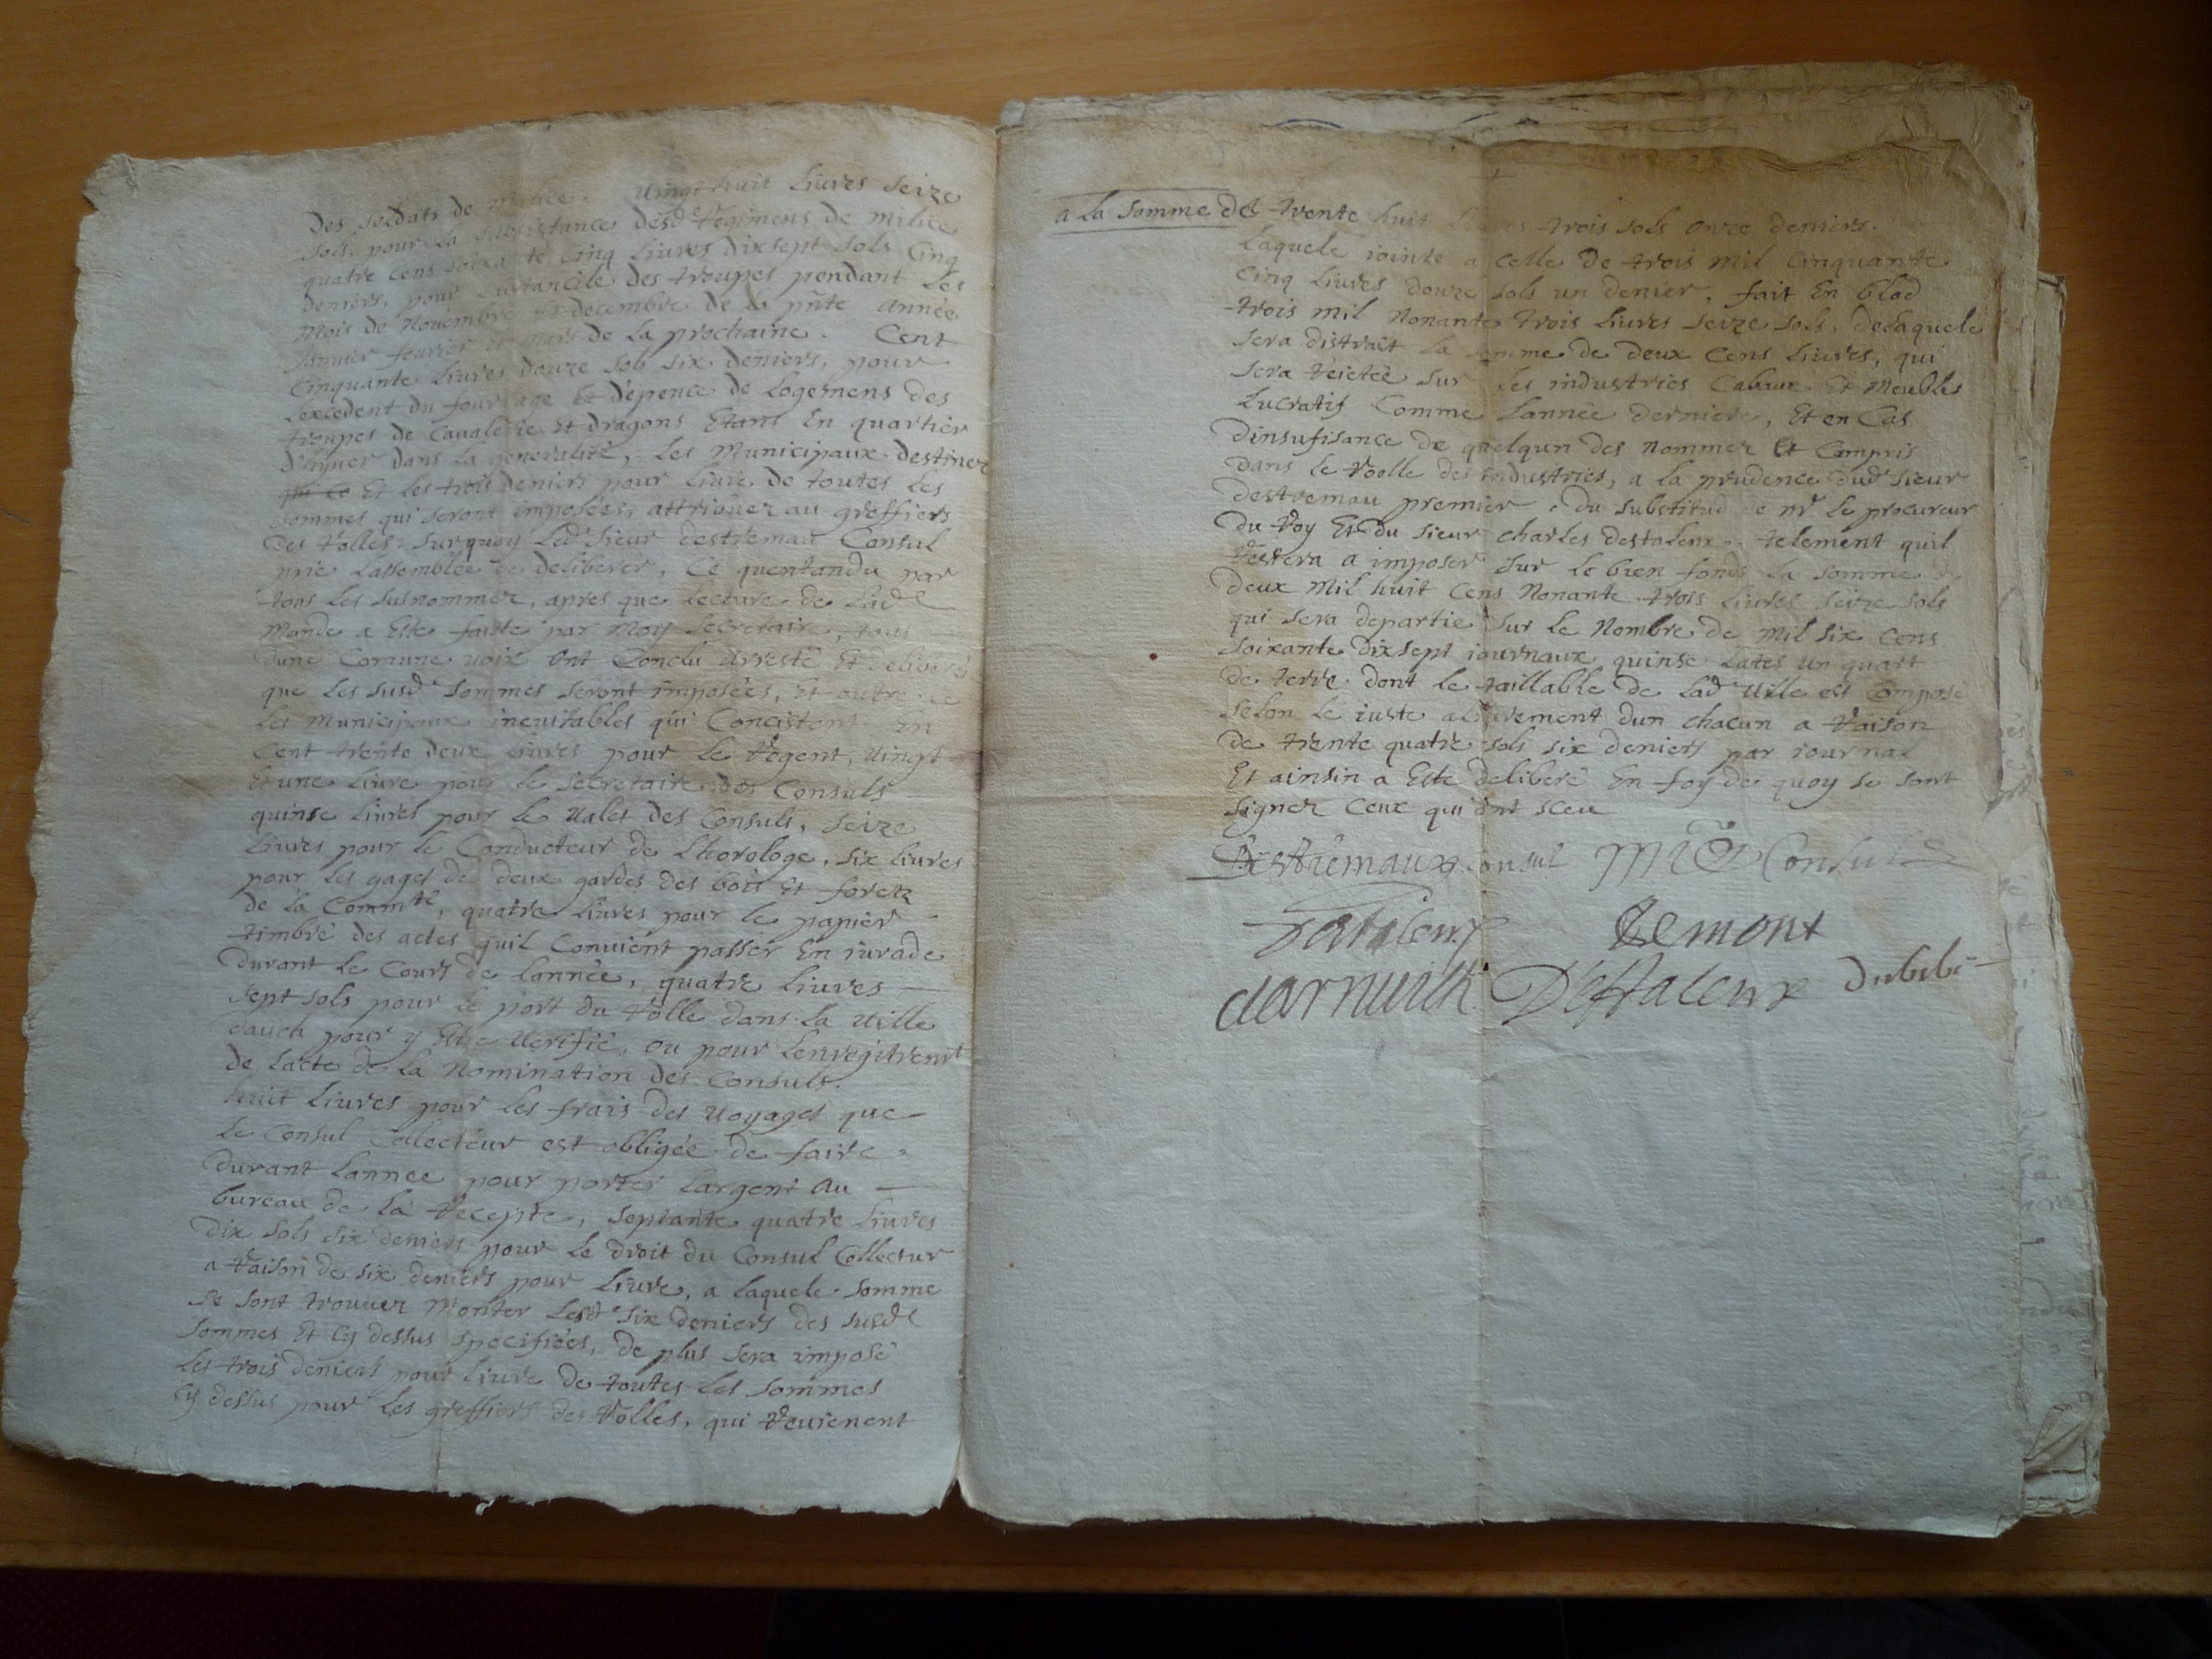 Des soldats de milice. Vingt huit Livres Seize
sols, pour la subsistance desd. Regimens de milice
quatre cens soixante Cinq Livres dixsept sols Cinq
deniers, pour Lustancile des troupes pendant Les
mois de Novembre Et decembre de la pñte année
Janvier fevrier et mars de la prochaine. Cent
Cinquante Livres douze sols six deniers, pour
Lexcedent du fourrage Et dépence de Logemens des
troupes de Cavalerie et dragons Etans En quartier
d'hyver dans la generalité, Les Municipaux destinez
Et les trois deniers pour Livre de toutes Les
sommes qui seront imposées, attribuez au greffiers
des Rolles. Surquoy Led. Sieur destremau Consul
prie Lassemblée de deliberer, Ce quentandu par
tous Les susnommez, apres que Lecture de Lad.
Mande a Este faitte par Moy secretaire, tous
dune Comune voix Ont Conclu Arresté Et deliberé
que Les susd. sommes seront imposées, Et outre ce
Les Municipaux inevitables qui Concistent En
Cent trente deux Livres pour le Regent, Vingt
Et une Livre pour le secretaire des Consuls
quinse Livres pour le Valet des Consuls, seize
Livres pour le Conducteur de Lhorologe, six Livres
pour les gages de deux gardes des bois Et foretz
de la Commté, quatre Livres pour le papier
timbré des actes quil Convient passer En jurade
durant le Cours de Lannée, quatre Livres
sept sols pour le port du Rolle dans la Ville
dauch pour y Etre Verifié, ou pour Lenregitremt
de Lacte de la Nomination des Consuls.
huit Livres pour les frais des Voyages que
le Consul Collecteur est obligée de faire
durant Lannee pour porter Largent Au
bureau de la Recepte, septante quatre Livres
Dix sols six deniers pour le droit du Consul Collectur
a Raison de six deniers pour Livre, a laquele somme
se sont trouvez Monter Lesd. six deniers des susd.
sommes Et Cy dessus specifiées, de plus sera imposé
Les trois deniers pour Livre de toutes Les sommes
Cy dessus pour Les greffiers des Rolles, qui Revienent
a la somme de trente huit Livres trois sols onze deniers.
Laquele jointe a Celle de trois mil Cinquante
Cinq Livres douze sols un denier, fait En blod
trois mil Nonante trois Livres seize sols, delaquele
sera distrait la somme de deux Cens Livres, qui
sera Reietée sur les industries Cabaux Et Meubles
Lucratifs Comme Lannée derniere, Et en Cas
dinsufisance de quelqun des Nommez Et Compris
dans le Rolle des industries, a la prudence dud. sieur
destremau premier, du substitud de mr. le procureur
du Roy Et du sieur charles destaleux. telement quil
Restera a imposer sur le bien fonds la somme
deux mil huit Cens Nonante trois Livres seize sols
qui sera departie sur le Nombre de mil six Cens
soixante dixsept journaux quinse Lates un quart
de terre dont le taillable de Lad. Ville est Composé
selon Le juste alivrement dun chacun a Raison
de trente quatre sols six deniers par journal
Et ainsin a Este deliberé En foy de quoy se sont
signez Ceux qui ont sceu
Destremaux Consul Consul
Destaleux Remont
Destaleux Dubibé